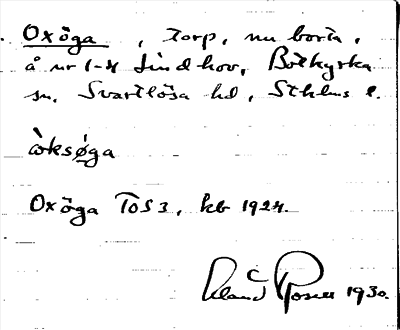 Oxöga, torp, nu borta,
å nr 1-4 Lindhov, Botkyrka
sn, Svartlösa hd, Sthlms l.
òksǿga
Oxöga TOS3, kb 1924.
1930.